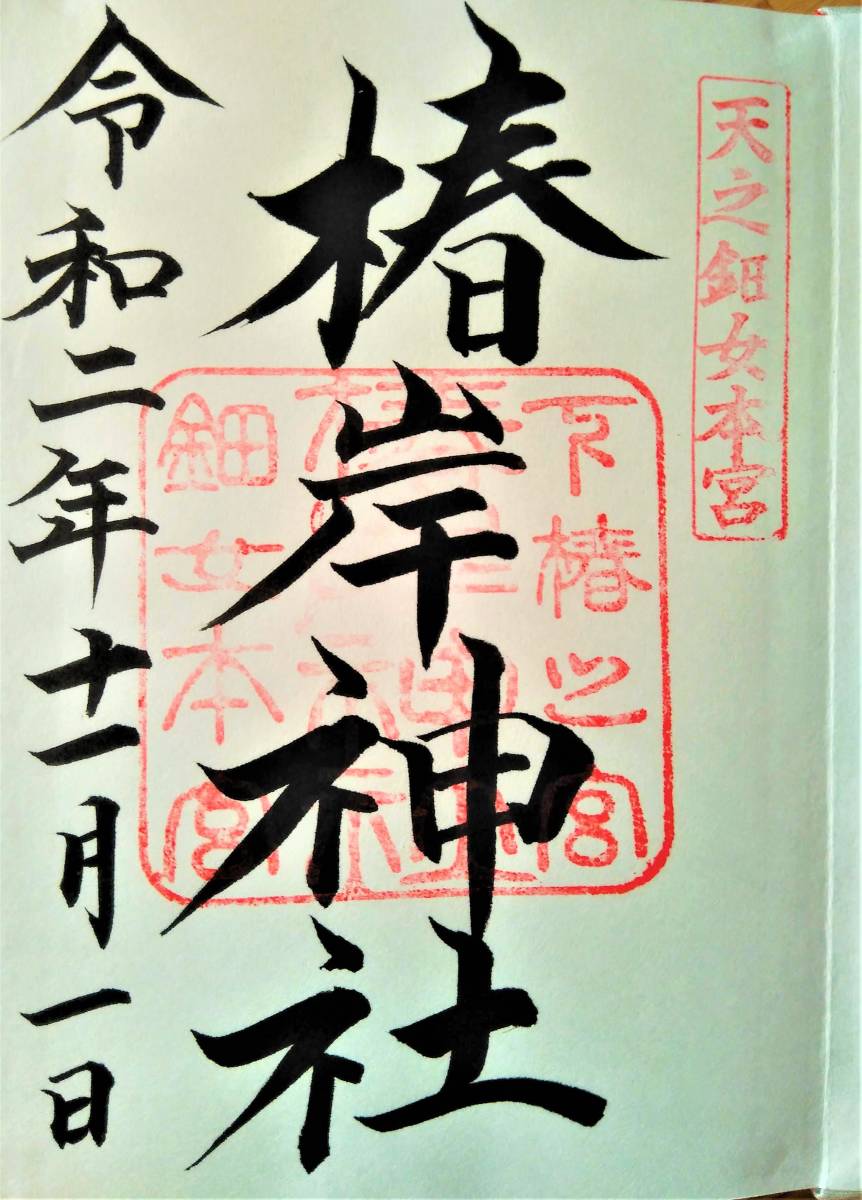 天之鈿女本宮
椿岸神社
下椿之宮
椿岸神社
鈿女本宮
令和二年十一月一日